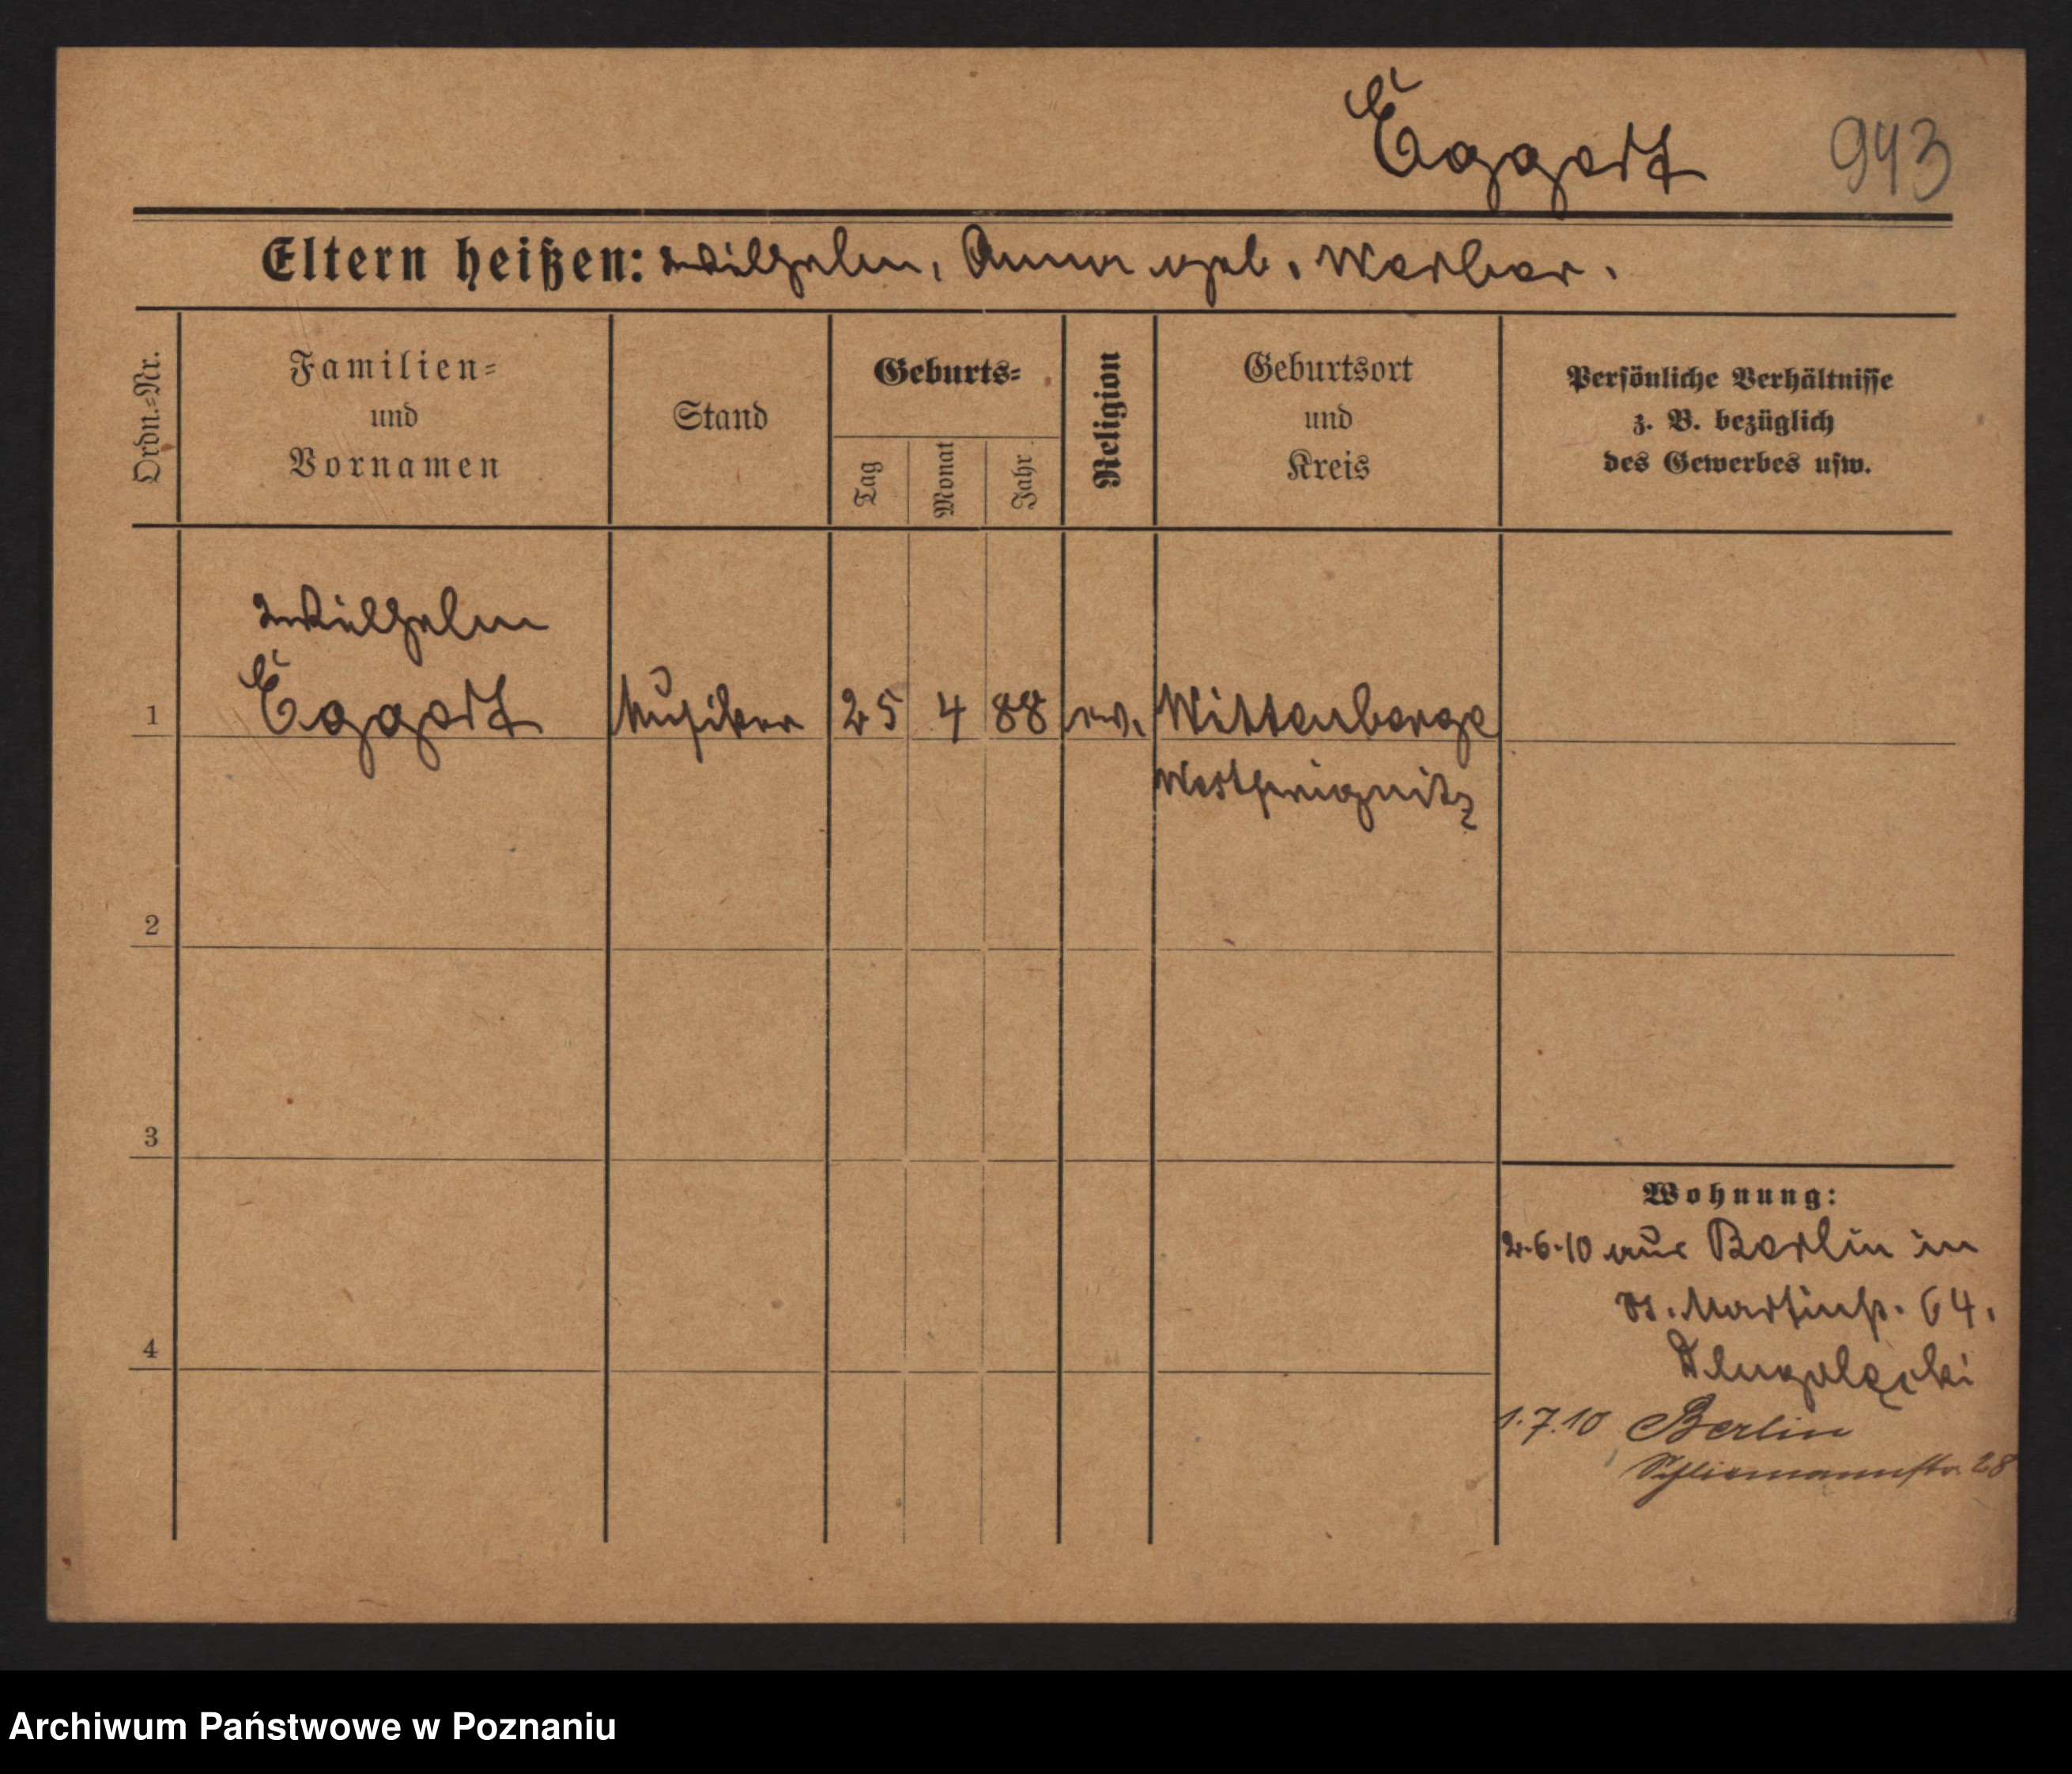 Eggert 943
Eltern heißen: Wilhelm, Anna geb. Werber.
Ordn.-Nr.
Familien-
und
Vornamen
Stand
Geburts-
Tag
Monat
Jahr
Religion
Geburtsort
und
Kreis
Persönliche Verhältnisse
z. B. bezüglich
des Gewerbes usw.
Wilhelm
1 Eggert Musiker 25 4 88 ev. Wittenberge
Westprignitz
2
3
4
Wohnung:
2.6.10 aus Berlin in
St. Martinstr. 64.
1.7.10 Berlin
Schliemannstr 28
Archiwum Państwowe w Poznaniu